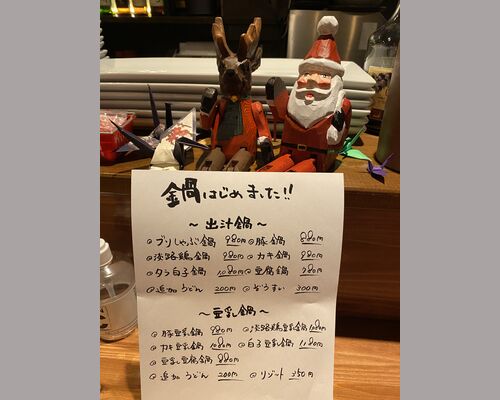 鍋はじめました!!
〜出汁鍋〜
◎ブリしゃぶ鍋 980円 ◎豚鍋 880円
◎淡路鶏鍋 980円 ◎カキ鍋 980円
◎タラ白子鍋 1080円 ◎豆腐鍋 780円
◎追加うどん 200円 ◎ぞうすい 300円
〜豆乳鍋〜
◎豚豆乳鍋 980円 ◎淡路鶏豆乳鍋 1080円
◎カキ豆乳鍋 1080円 ◎白子豆乳鍋 1180円
◎豆乳豆腐鍋 880円
◎追加うどん 200円 ◎リゾット 350円